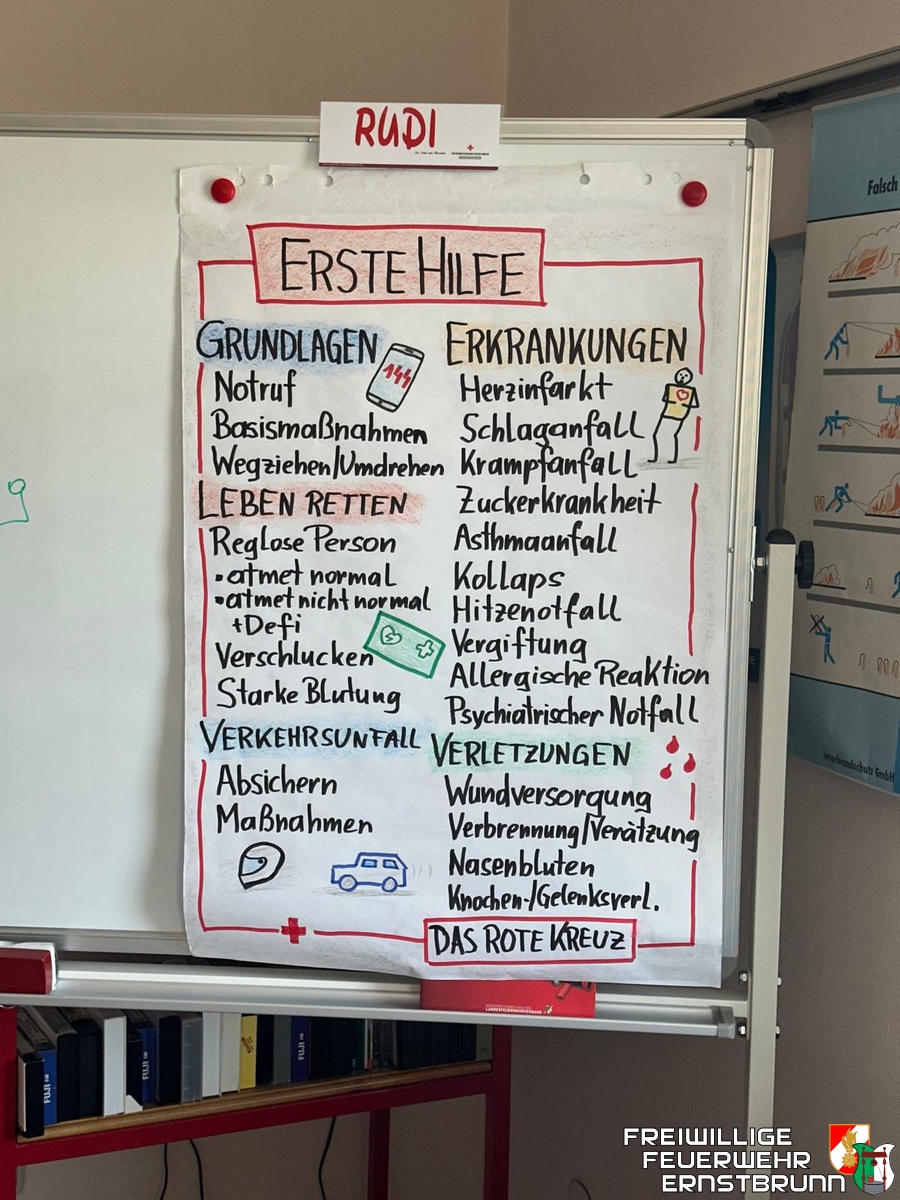 RUDI
Falsch
ERSTE HILFE
GRUNDLAGEN
144
Notruf
Basismaßnahmen
Wegziehen/Umdrehen
LEBEN RETTEN
Reglose Person
• atmet normal
• atmet nicht normal
+ Defi
Verschlucken
Starke Blutung
VERKEHRSUNFALL
Absichern
Maßnahmen
ERKRANKUNGEN
Herzinfarkt
Schlaganfall
Krampfanfall
Zuckerkrankheit
Asthmaanfall
Kollaps
Hitzenotfall
Vergiftung
Allergische Reaktion
Psychiatrischer Notfall
VERLETZUNGEN
Wundversorgung
Verbrennung/Verätzung
Nasenbluten
Knochen-/Gelenksverl.
DAS ROTE KREUZ
LANDESFEUERWEHRVERBAND
FUJI
FUJI
FUJI
FREIWILLIGE
FEUERWEHR
ERNSTBRUNN